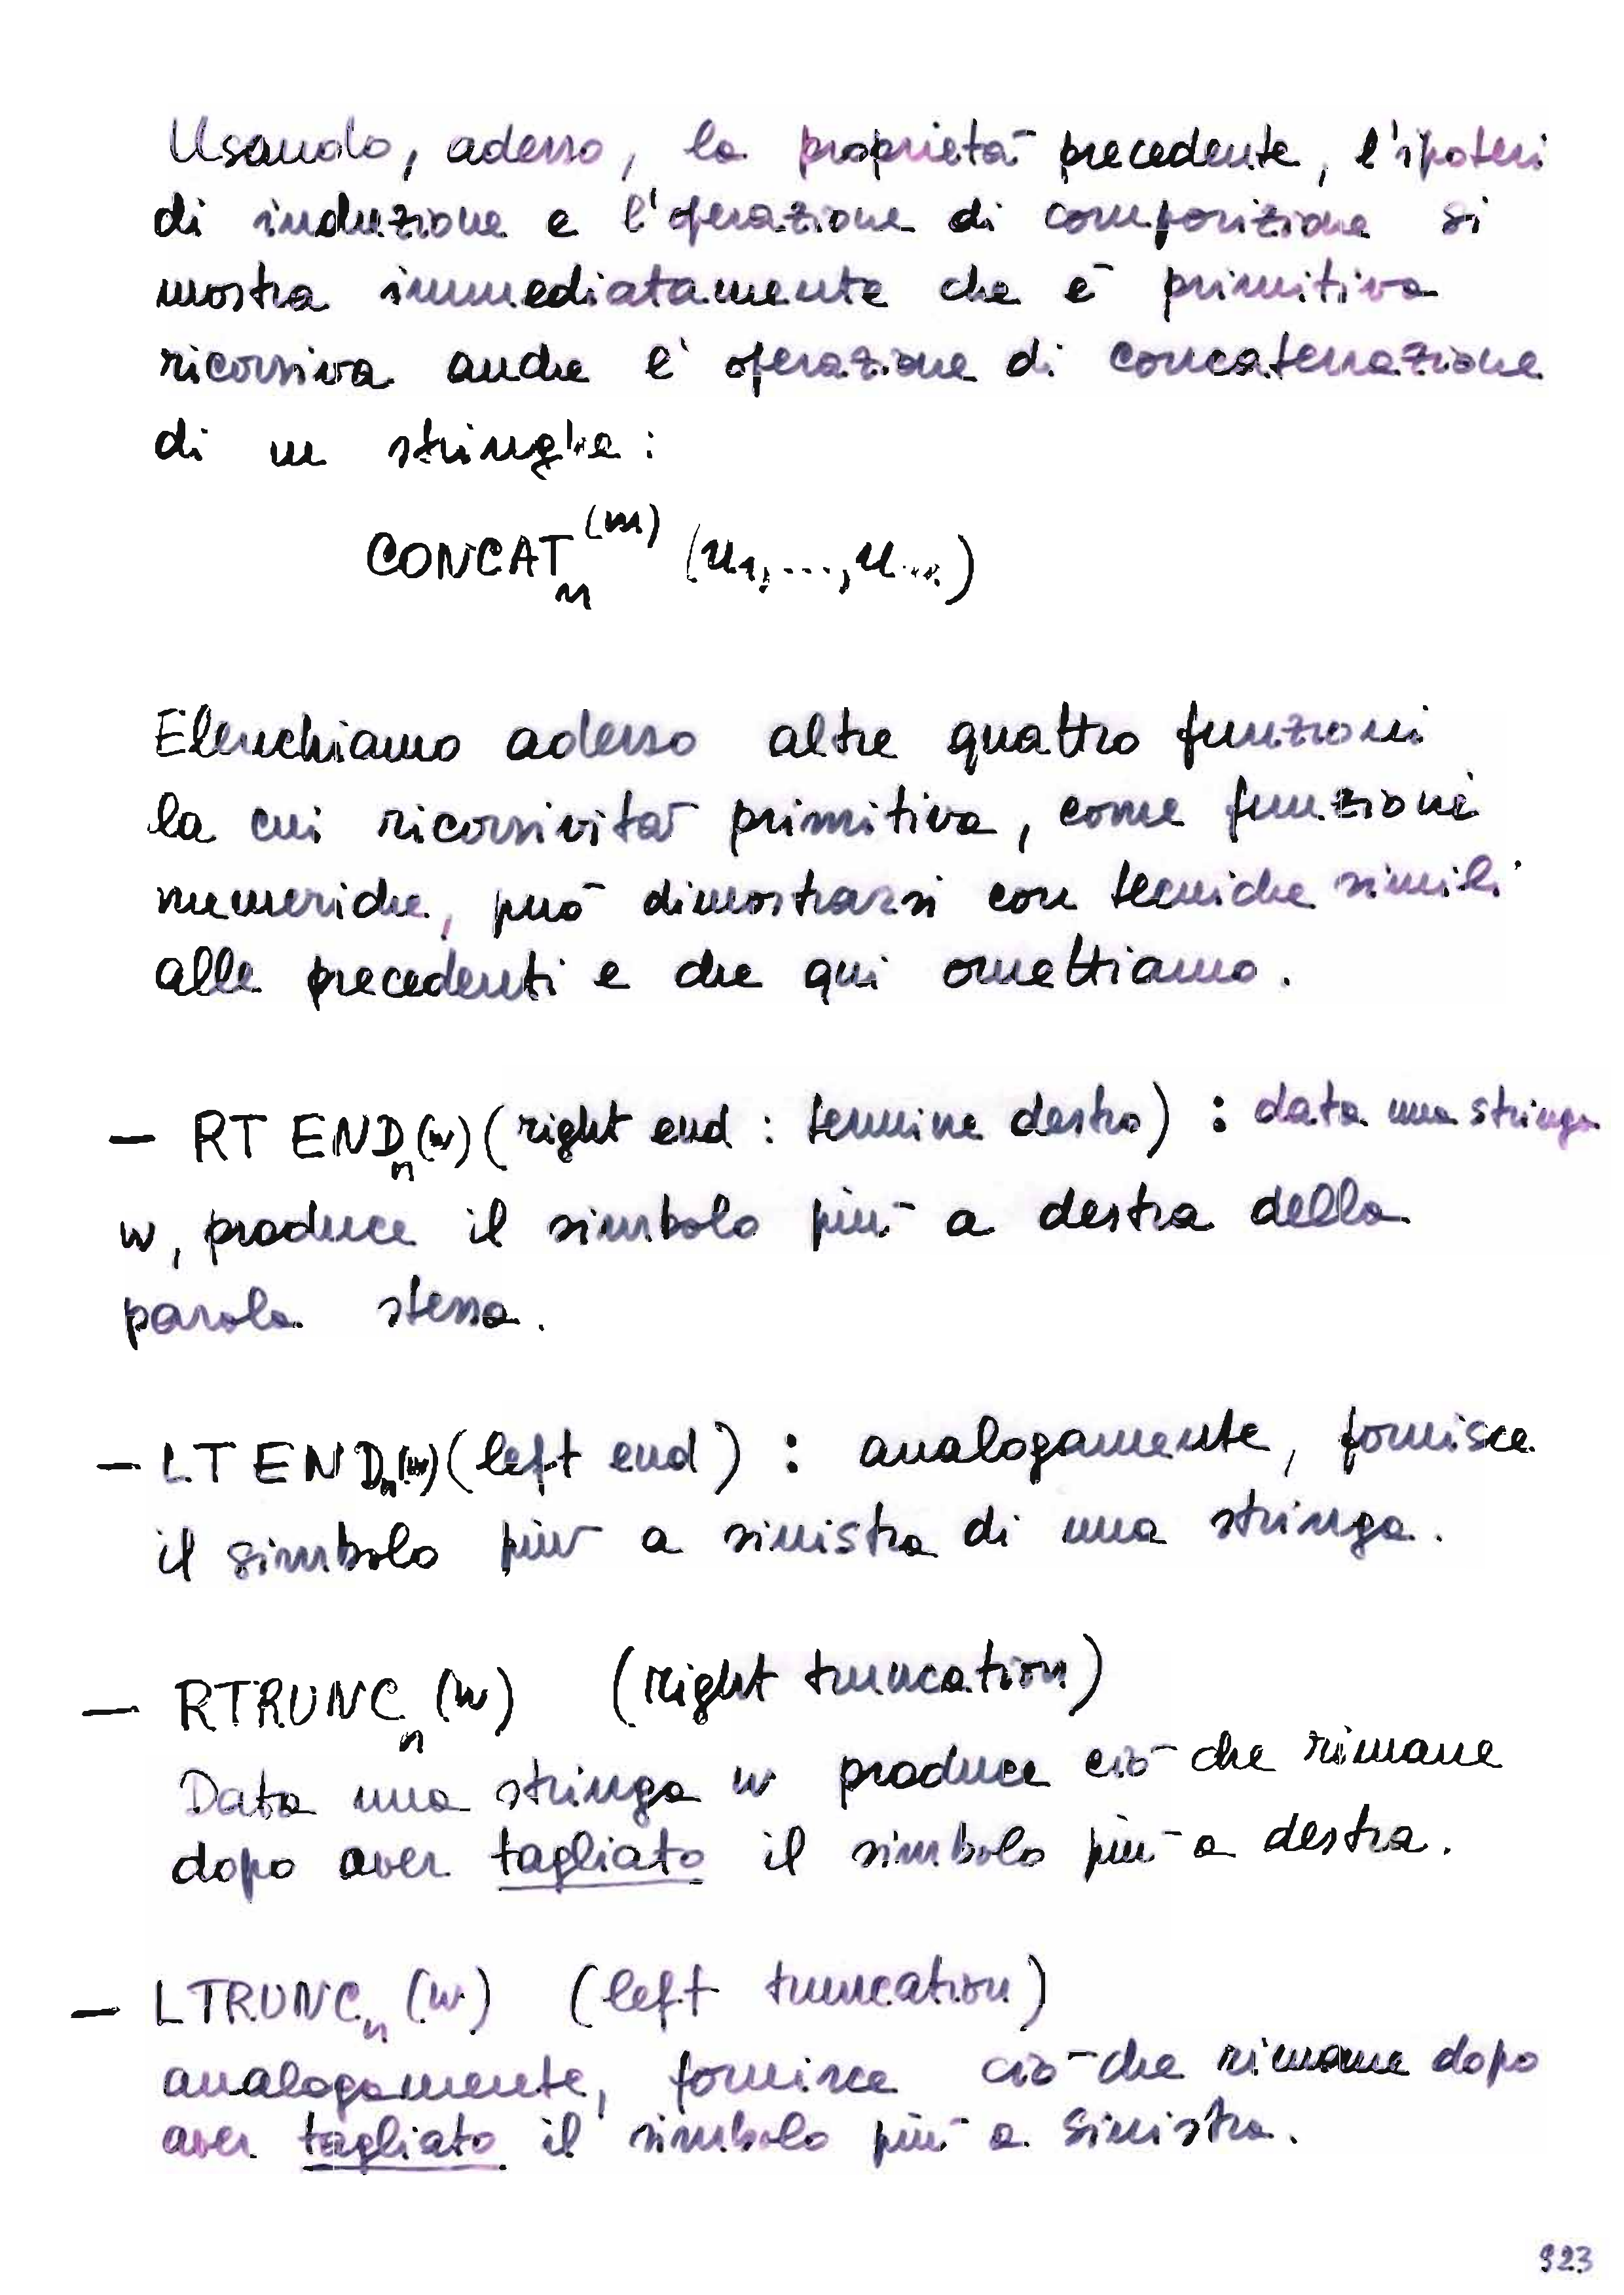 Usando, adesso, la proprietà precedente, l'ipotesi
di induzione e l'operazione di composizione si
mostra immediatamente che è primitiva
ricorsiva anche l'operazione di concatenazione
di m stringhe:
CONCATₙ⁽ᵐ⁾ (u₁, ..., uₘ)
Elenchiamo adesso altre quattro funzioni
la cui ricorsività primitiva, come funzioni
numeriche, può dimostrarsi con tecniche simili
alle precedenti e che qui omettiamo.
— RT ENDₙ(w) (right end : termine destro) : data una stringa
w, produce il simbolo più a destra della
parola stessa.
— LT ENDₙ(w) (left end) : analogamente, fornisce
il simbolo più a sinistra di una stringa.
— RTRUNCₙ (w) (right truncation)
Data una stringa w produce ciò che rimane
dopo aver tagliato il simbolo più a destra.
— LTRUNCₙ (w) (left truncation)
analogamente, fornisce ciò che rimane dopo
aver tagliato il simbolo più a sinistra.
323